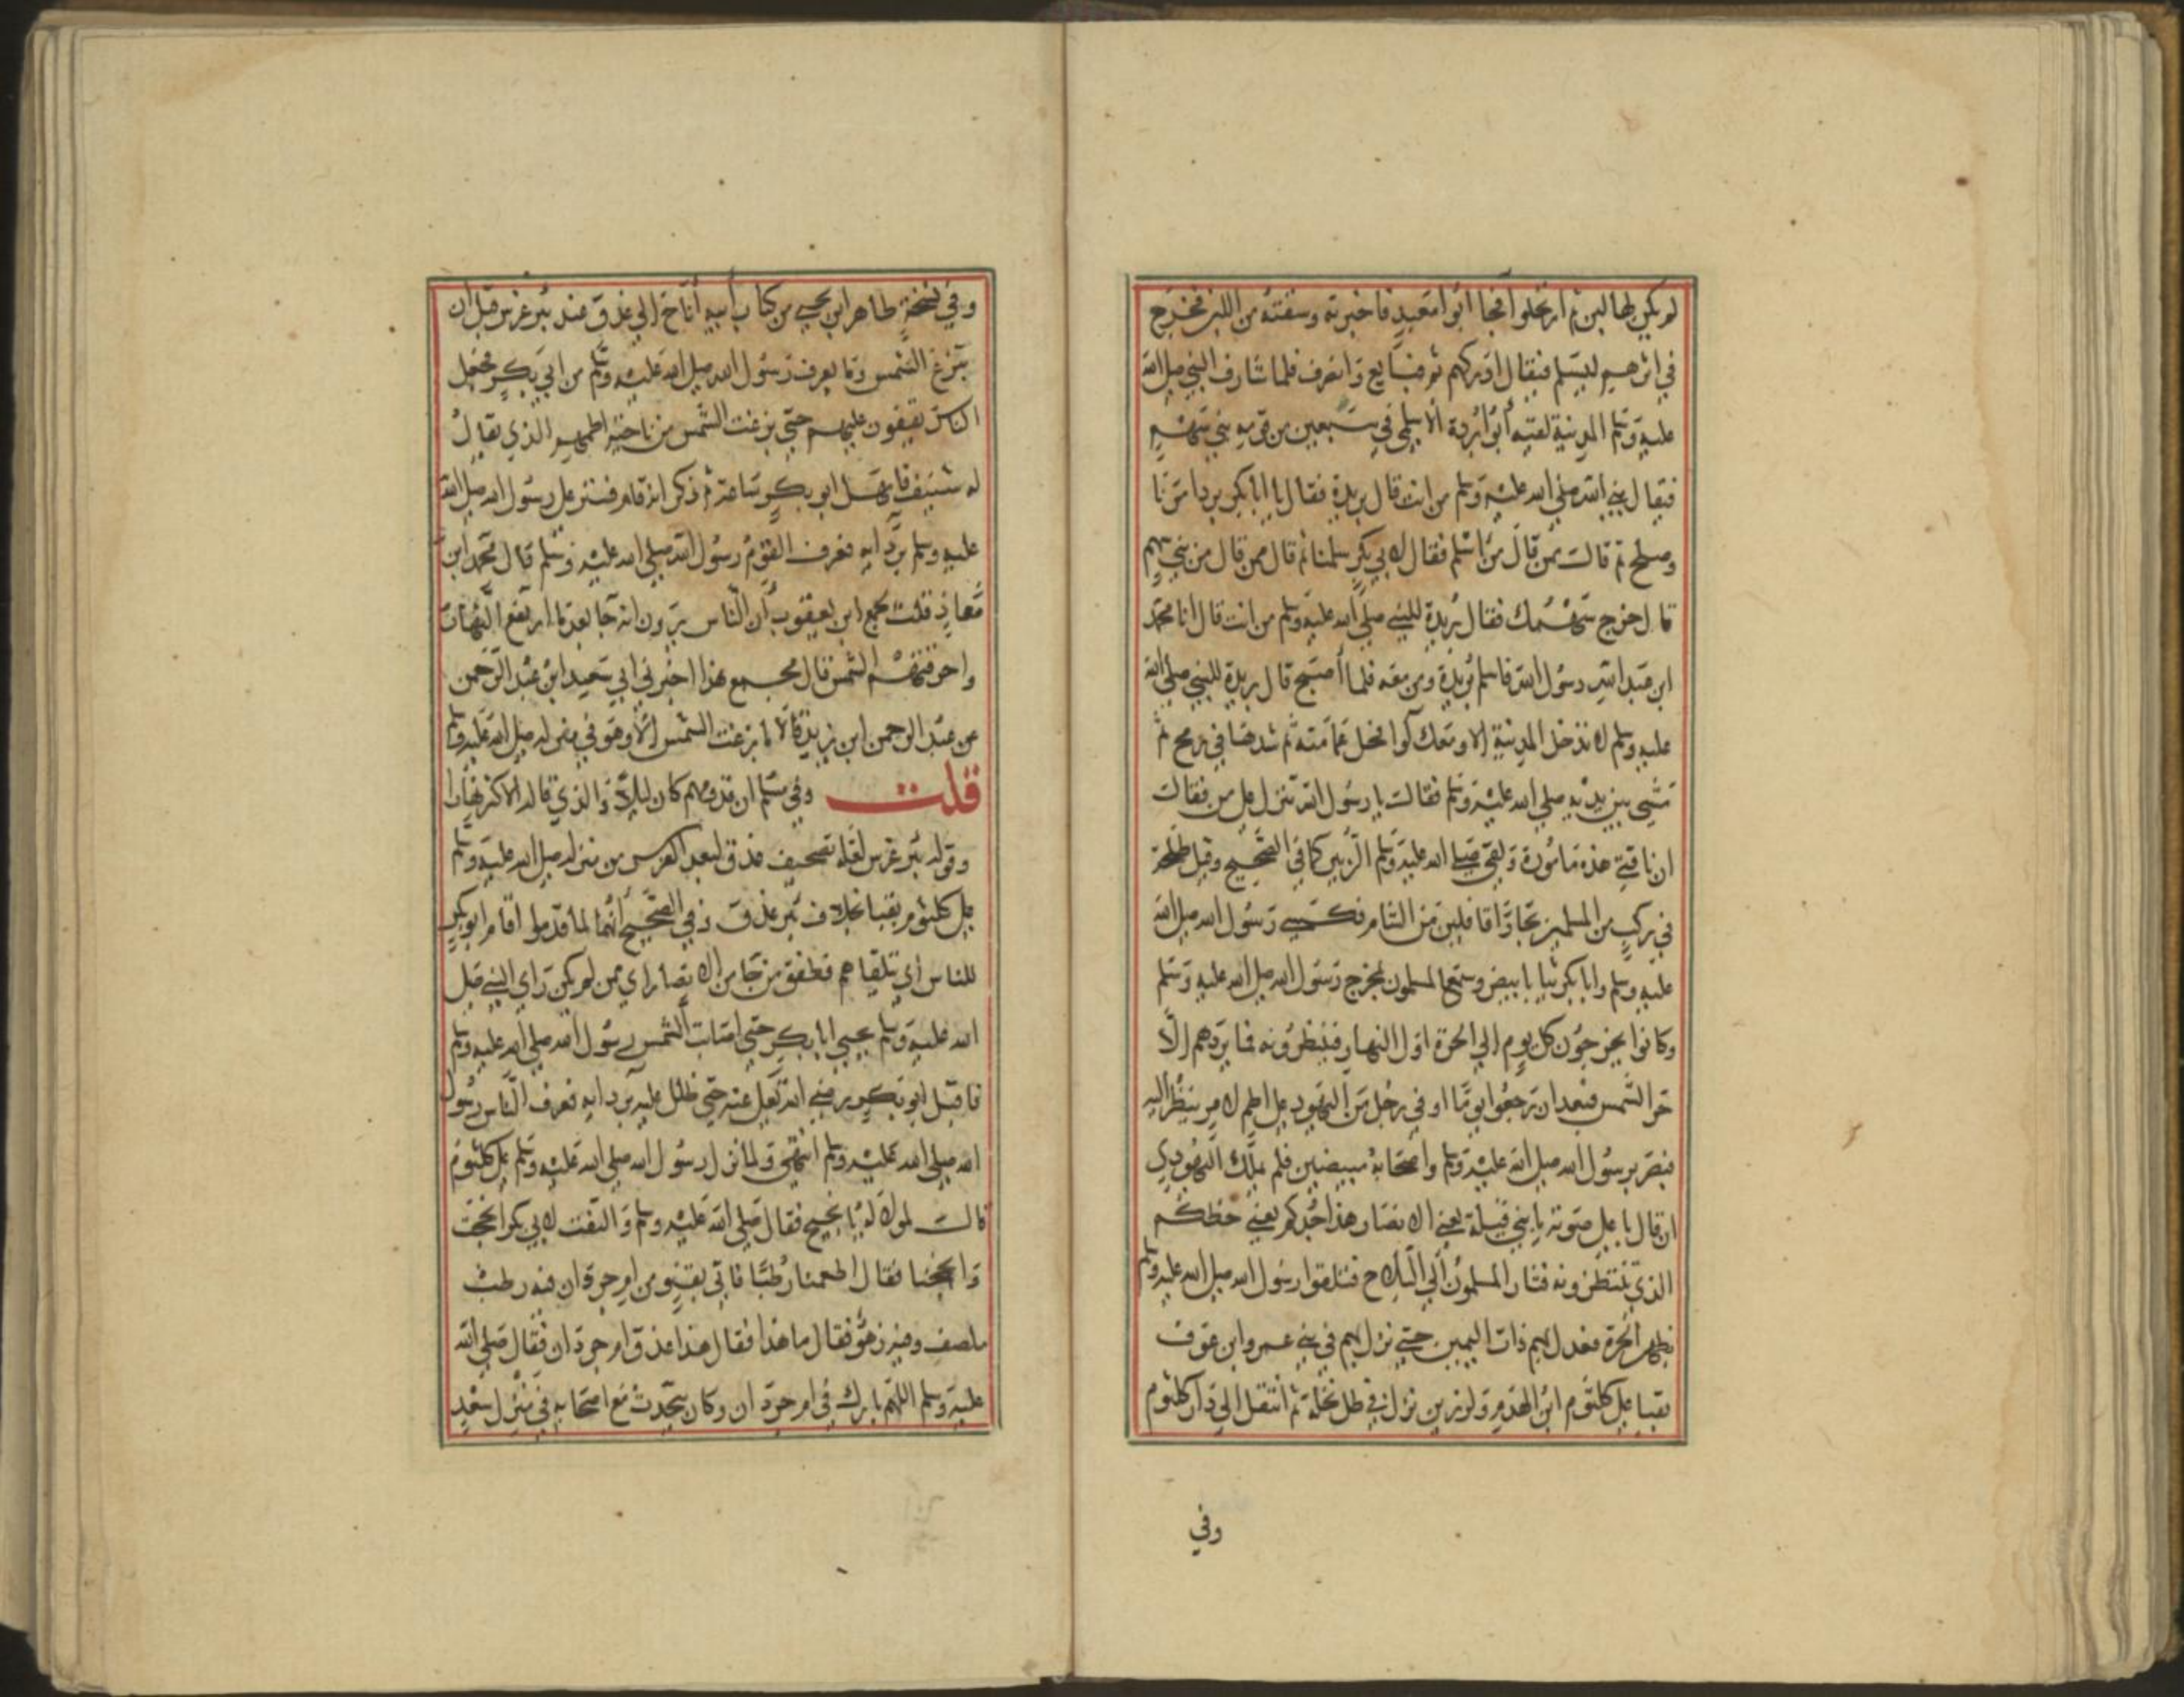 لم يكن لها لبن ثم ارتحلوا فجا ابو معبد فاخبرته وسقته من اللبن فخرج
في اثرهم ليسلم فيقال ادركهم ثم فبايع وانصرف فلما شارف النبي صلى الله
عليه وسلم المدينة لقيه أبو بردة الاسلمي في سبعين من قومه بني سهم
فقال نبي الله صلى الله عليه وسلم من انت قال بريدة فقال يا ابا بكر برد امرنا
وصلح ثم قالت ممن قال من اسلم فقال لابي بكر سلمنا ثم قال ممن قال من بني سهم
قال خرج سهمك فقال بريدة للنبي صلى الله عليه وسلم من انت قال انا محمد
ابن عبد الله رسول الله فاسلم بريدة ومن معه فلما أصبح قال بريدة للنبي صلى الله
عليه وسلم لا تدخل المدينة الا ومعك لوا فحل عمامته ثم شدها في رمح ثم
تمشي بين يديه صلى الله عليه وسلم فقالت يا رسول الله تنزل على من فقالت
ان ناقتي هذه مامورة ولقي صلى الله عليه وسلم الزبير كما في الصحيح وقيل طلحة
في ركب من المسلمين تجارا قافلين من الشام فكسى رسول الله صلى الله
عليه وسلم وابا بكر ثيابا بيض وسمع المسلمون بخرج رسول الله صلى الله عليه وسلم
وكانوا يخرجون كل يوم الي الحرة اول النهار فينظرونه فما يردهم إلا
حر الشمس فبعد ان رجعوا يوما اوفى رجل من اليهود على اطم لامر ينظر اليه
فبصر برسول الله صلى الله عليه وسلم وأصحابه مبيضين فلم يملك اليهودي
ان قال با على صوته يا بني قيلة يعني الانصار هذا جدكم يعني حظكم
الذي تنتظرونه فثار المسلمون الي السلاح فتلقوا رسول الله صلى الله عليه وسلم
بظهر الحرة فعدل بهم ذات اليمين حتي نزل بهم في بني عمرو ابن عوف
بقبا على كلثوم ابن الهدم ولرزين نزل في ظل نخلة ثم انتقل الي دار كلثوم
وفي
وفي نسخة طاهر ابن يحيي من كتاب أبيه أناخ الي عذق عند بئر غرس قبل ان
تبزغ الشمس وما يعرف رسول الله صلى الله عليه وسلم من ابي بكر فجعل
الناس يقفون عليهم حتي بزغت الشمس من ناحية اطمهم الذي يقال
له شنيف فامهل ابو بكر ساعة ثم ذكر انه قام فستر على رسول الله صلى الله
عليه وسلم بردايه فعرف القوم رسول الله صلى الله عليه وسلم قال محمد ابن
معاذ قلت لمجمع ابن يعقوب أن الناس يرون انه جا بعد ما ارتفع النهار
واحرقتهم الشمس قال مجمع هذا اخبرني ابي سعيد ابن عبد الرحمن
عن عبد الرحمن ابن يزيد قالا ما بزغت الشمس إلا وهو في منزله صلى الله عليه وسلم
قلت وفي مسلم ان قدومهم كان ليلا والذي قاله الاكثر نهارا
وقوله بئر غرس لعله تصحيف عذق لبعد الغرس من منزله صلى الله عليه وسلم
على كلثوم بقبا بخلاف بئر عذق وفي الصحيح أنهما لما قدموا اقام ابو بكر
للناس اي يتلقاهم فطفق من جا من الانصار اي ممن لم يكن راي النبي صلى
الله عليه وسلم يحيي ابا بكر حتي اصابت الشمس رسول الله صلى الله عليه وسلم
فاقبل ابو بكر رضي الله تعالى عنه حتي ظلل عليه بردايه فعرف الناس رسول
الله صلى الله عليه وسلم انتهى ولما نزل رسول الله صلى الله عليه وسلم على كلثوم
قالت لمولا له يا نجيح فقال صلى الله عليه وسلم والتفت لابي بكر انجحت
وانجحنا فقال اطعمنا رطبا فاتي بقنو من ام جردان فيه رطب
ملصف وفيه زهو فقال ما هذا فقال هذا عذق ام جردان فقال صلى الله
عليه وسلم اللهم بارك في ام جردان وكان يتحدث مع اصحابه في منزل سعد